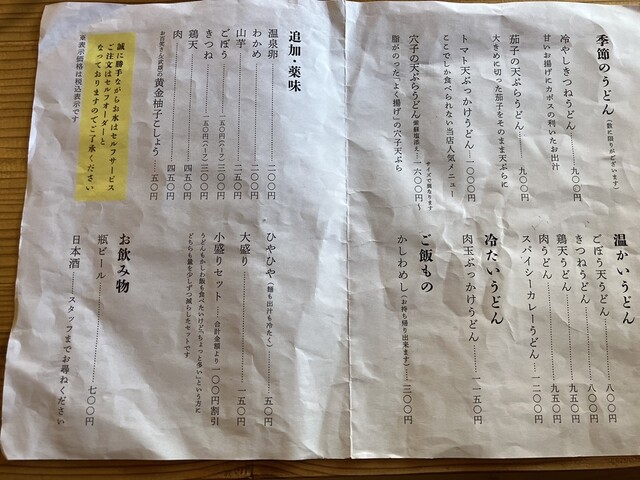 季節のうどん（数に限りがございます）
冷やしきつねうどん…九〇〇円
甘いお揚げにカボスの利いたお出汁
茄子の天ぷらうどん…九〇〇円
大きめに切った茄子をそのまま天ぷらに
トマト天ぶっかけうどん…一一〇〇円
ここでしか食べられない当店人気メニュー
サイズで異なります
穴子の天ぷらうどん 一六〇〇円〜
脂がのった「よく揚げ」の穴子天ぷら
温かいうどん
ごぼう天うどん…八〇〇円
きつねうどん…八〇〇円
鶏天うどん…九五〇円
肉うどん…九五〇円
スパイシーカレーうどん…一二〇〇円
冷たいうどん
肉玉ぶっかけうどん…一一五〇円
ご飯もの
かしわめし（お持ち帰り出来ます）…三〇〇円
追加・薬味
温泉卵…二〇〇円
わかめ…二〇〇円
山芋…二五〇円
ごぼう…一五〇円（ハーフ）三〇〇円
きつね…一五〇円（ハーフ）三〇〇円
鶏天…四五〇円
肉…四五〇円
黄金柚子こしょう…五〇円
誠に勝手ながらお水はセルフサービス
ご注文はセルフオーダーと
なっておりますのでご了承ください
※表示価格は税込表示です
ひやひや（麺も出汁も冷たく）…五〇円
大盛り…一五〇円
小盛りセット…合計金額より一〇〇円割引
うどんもかしわ飯も食べたいけど「ちょっと多い」という方に
どちらも量を少しずつ減らしたセットです
お飲み物
瓶ビール…七〇〇円
日本酒…スタッフまでお尋ねください